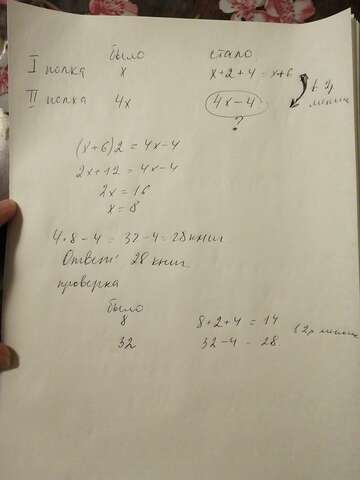 было стало
I полка x x+2+4=x+6
в 2р меньше
II полка 4x 4x-4
?
(x+6)2=4x-4
2x+12=4x-4
2x=16
x=8
4*8-4=32-4=28 книг
Ответ: 28 книг
проверка
было
8 8+2+4=14
в 2р меньше
32 32-4=28